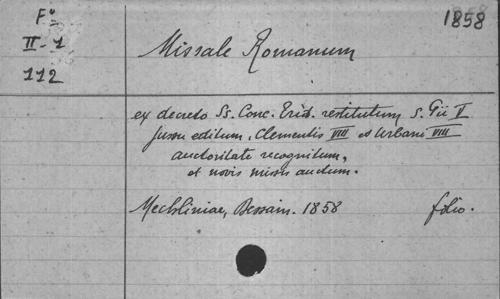 F°
1858
II-1
Missale Romanum
112
ex decreto Ss. Conc. Trid. restitutum S. Pii V
jussu editum, Clementis VIII et Urbani VIII
auctoritate recognitum,
et novis missis auctum.
Mechliniae, Dessain. 1858 folio.